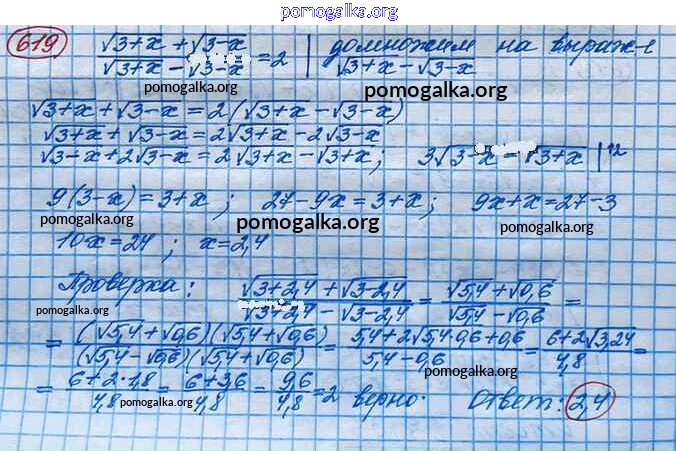 pomogalka.org
619 (√3+x + √3-x)/(√3+x - √3-x) = 2 | домножим на выраж-е
√3+x - √3-x
pomogalka.org pomogalka.org
√3+x + √3-x = 2(√3+x - √3-x)
√3+x + √3-x = 2√3+x - 2√3-x
√3-x + 2√3-x = 2√3+x - √3+x; 3√3-x = √3+x |^2
9(3-x) = 3+x; 27-9x = 3+x; 9x+x = 27-3
pomogalka.org pomogalka.org pomogalka.org
10x = 24; x = 2,4
Проверка: (√3+2,4 + √3-2,4)/(√3+2,4 - √3-2,4) = (√5,4 + √0,6)/(√5,4 - √0,6) =
pomogalka.org pomogalka.org
= (√5,4+√0,6)(√5,4+√0,6)/(√5,4-√0,6)(√5,4+√0,6) = (5,4+2√5,4·0,6+0,6)/(5,4-0,6) = (6+2√3,24)/4,8 =
pomogalka.org
= (6+2·1,8)/4,8 = (6+3,6)/4,8 = 9,6/4,8 = 2 верно. Ответ: 2,4
pomogalka.org